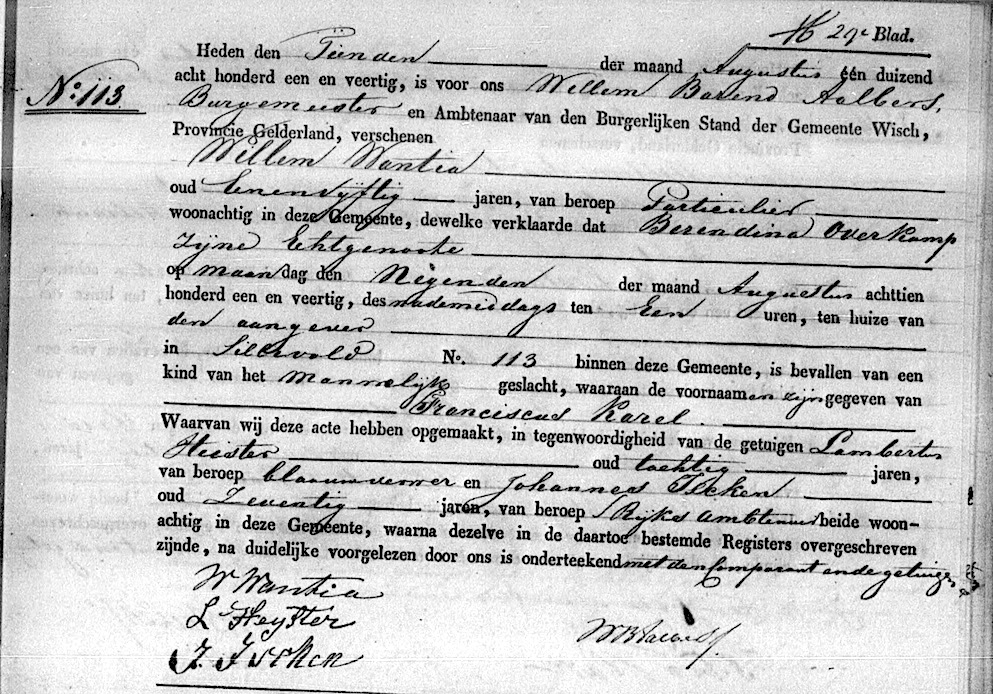 29e Blad.
Heden den Tienden der maand Augustus één duizend
No. 113
acht honderd een en veertig, is voor ons Willem Barend Aalbers,
Burgemeester en Ambtenaar van den Burgerlijken Stand der Gemeente Wisch,
Provincie Gelderland, verschenen
Willem Wantia
oud Eenenvijftig jaren, van beroep Particulier
woonachtig in deze Gemeente, dewelke verklaarde dat Berendina Overkamp
Zijne Echtgenoote
op maandag den Negenden der maand Augustus achttien
honderd een en veertig, des nademiddags ten Een uren, ten huize van
den aangever
in Silevold No. 113 binnen deze Gemeente, is bevallen van een
kind van het Mannelijk geslacht, waaraan de voornaamen zijn gegeven van
Franciscus Karel.
Waarvan wij deze acte hebben opgemaakt, in tegenwoordigheid van de getuigen Lambertus
Heister oud tachtig jaren,
van beroep blaauwverwer en Johannes Iseken
oud Zeventig jaren, van beroep Rijks Ambtenaar beide woon-
achtig in deze Gemeente, waarna dezelve in de daartoe bestemde Registers overgeschreven
zijnde, na duidelijke voorgelezen door ons is onderteekend met den Comparant en de getuigen
W Wantia
L Heyster
J. Iseken